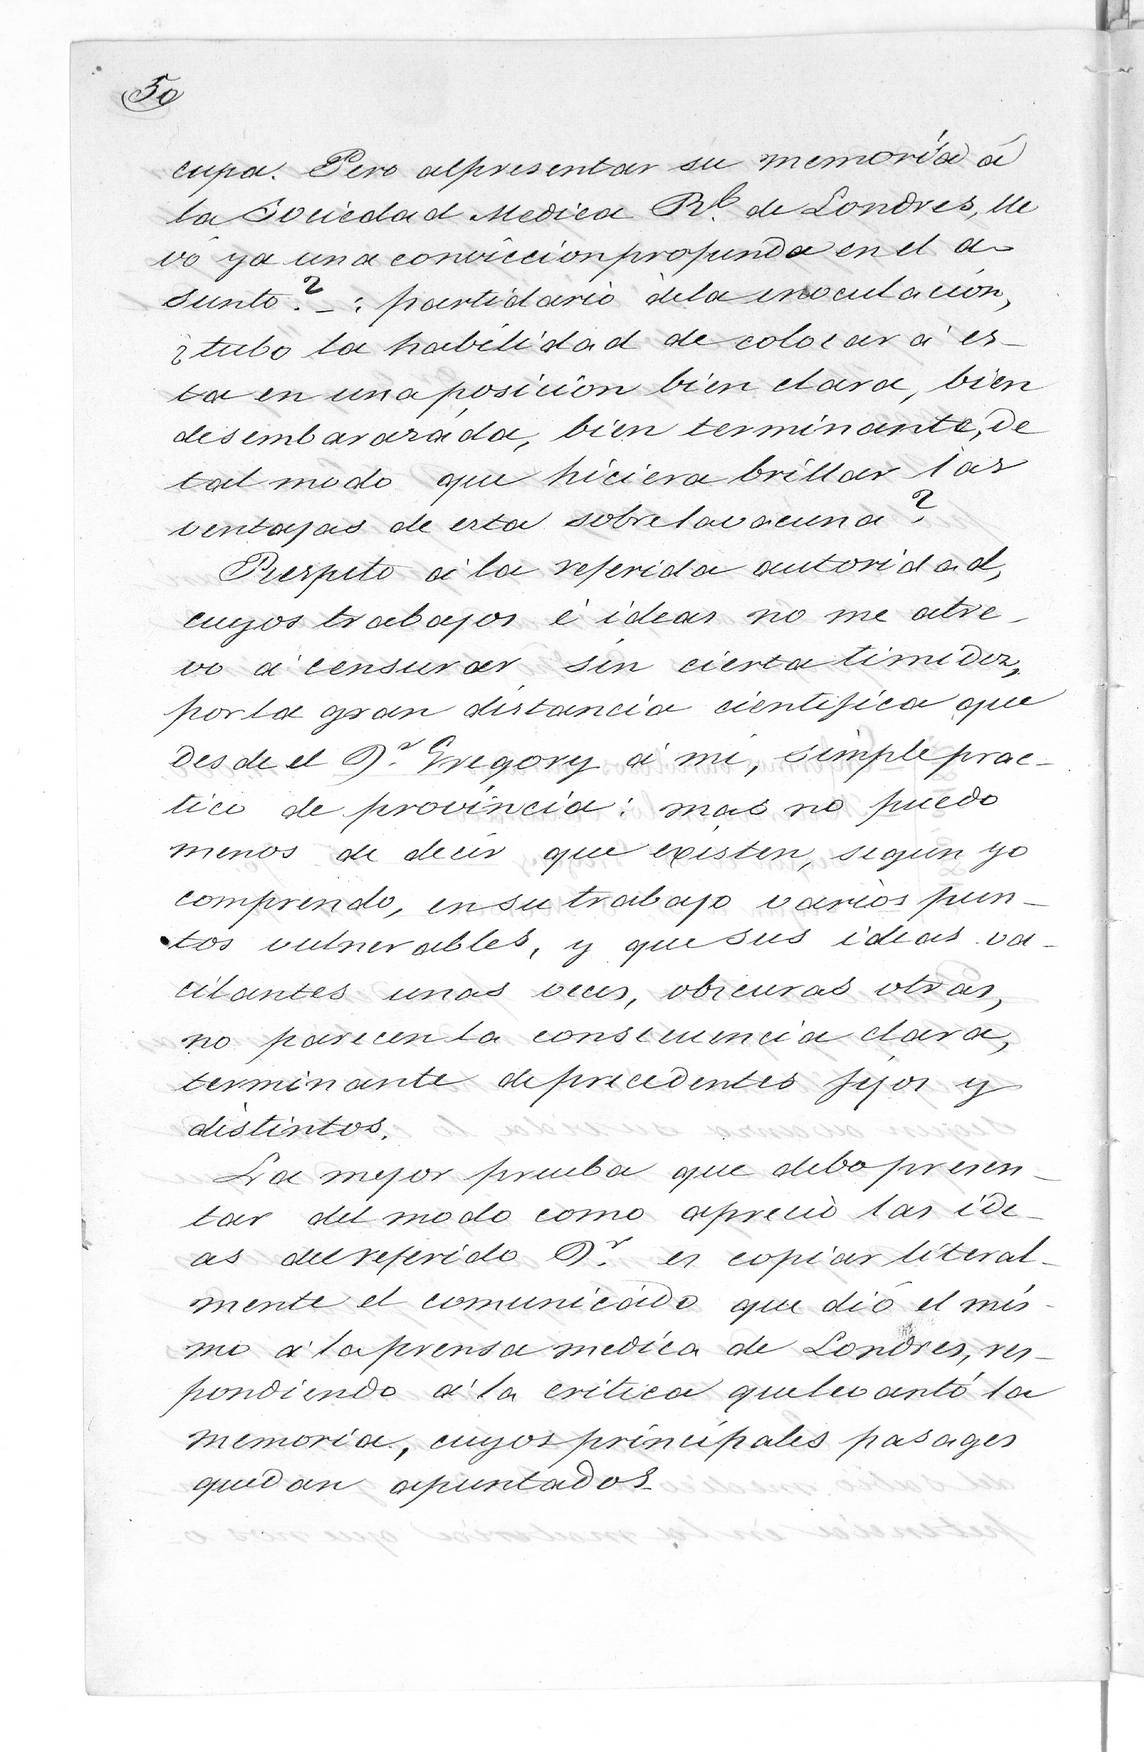 50
cupa. Pero alpresentar su memoria á
la Sociedad Medica Rl. de Londres, lle
vó ya una convíccion profunda en el a-
sunto?_: partidario dela inoculacion,
¿tubo la habilidad de colocar á es-
ta en una posicíon bien clara, bien
desembarazáda, bien terminante, de
tal modo que hiciera brillar las
ventajas de esta sobrelavacuna?
Respeto á la referida autoridad,
cuyos trabajos é ideas no me atre-
vo á censurar sin cierta timidez,
por la gran distancia cientifica que
desde el Dr. Gregory á mi, simple prac-
tico de província: mas no puedo
menos de decir que existen, segun yo
comprendo, en su trabajo varios pun-
tos vulnerables, y que sus ideas va-
cilantes unas veces, obscuras otras,
no parecen la consecuencia clara,
terminante de precedentes fijos y
distintos.
La mejor prueba que debo presen-
tar del modo como aprecio las ide-
as del referido Dr. es copiar literal-
mente el comunicádo que dió el mis-
mo á la prensa medica de Londres, res-
pondiendo á la critica que levantó la
memoria, cuyos príncipales pasages
quedan apuntados_